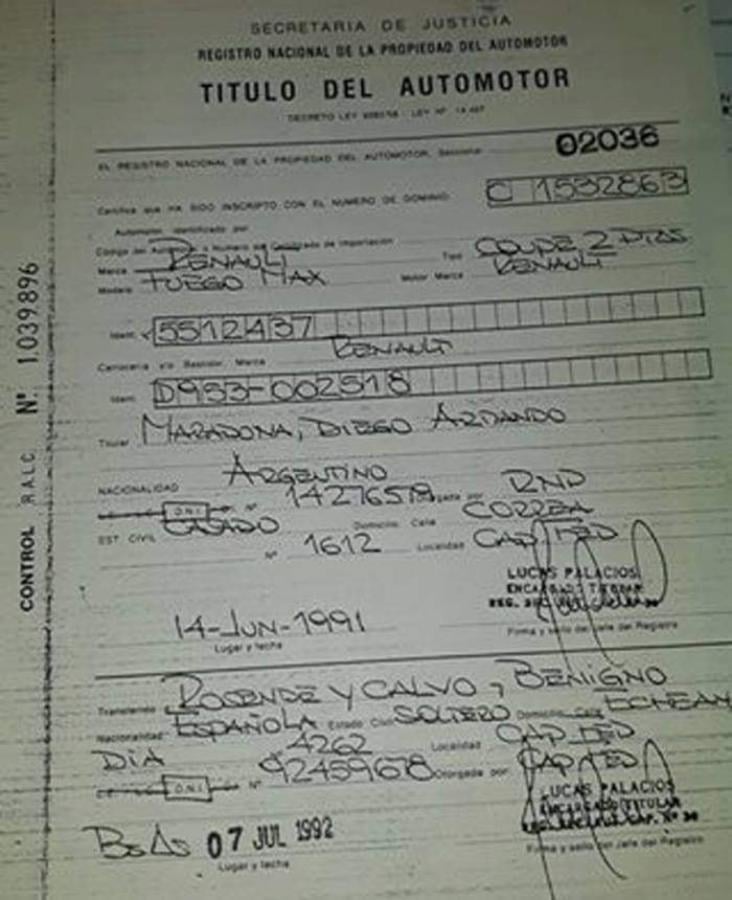 SECRETARIA DE JUSTICIA
REGISTRO NACIONAL DE LA PROPIEDAD DEL AUTOMOTOR
TITULO DEL AUTOMOTOR
DECRETO LEY - LEY Nº
EL REGISTRO NACIONAL DE LA PROPIEDAD DEL AUTOMOTOR, Seccional 02036
Certifica que HA SIDO INSCRIPTO CON EL NUMERO DE DOMINIO C 1532863
Automotor identificado por
Código del o Numero de Certificado de Importación
Marca RENAULT Tipo COUPE 2 PTAS
Modelo FUEGO MAX Motor Marca RENAULT
Núm. 5512437
Carrocería y/o Bastidor, Marca RENAULT
Núm. D953-002518
Titular MARADONA, DIEGO ARMANDO
NACIONALIDAD ARGENTINO
D.N.I. Nº 14276579 por RNP
EST CIVIL CASADO Domicilio Calle CORREA
Nº 1612 Localidad CAP FED
LUCAS PALACIOS
ENCARGADO TITULAR
14-JUN-1991
Lugar y fecha
Firma y sello del Jefe del Registro
Transferido ROSENDE Y CALVO, BENIGNO
Nacionalidad ESPAÑOLA Estado Civil SOLTERO Domicilio Calle ECHEAN
DIA 4262 Localidad CAP FED
D.N.I. Nº 92459678 Otorgada por CAP FED
LUCAS PALACIOS
ENCARGADO TITULAR
Bs As 07 JUL 1992
Lugar y fecha
Firma y sello del Jefe del Registro
CONTROL R.A.L.C. Nº 1.039.896